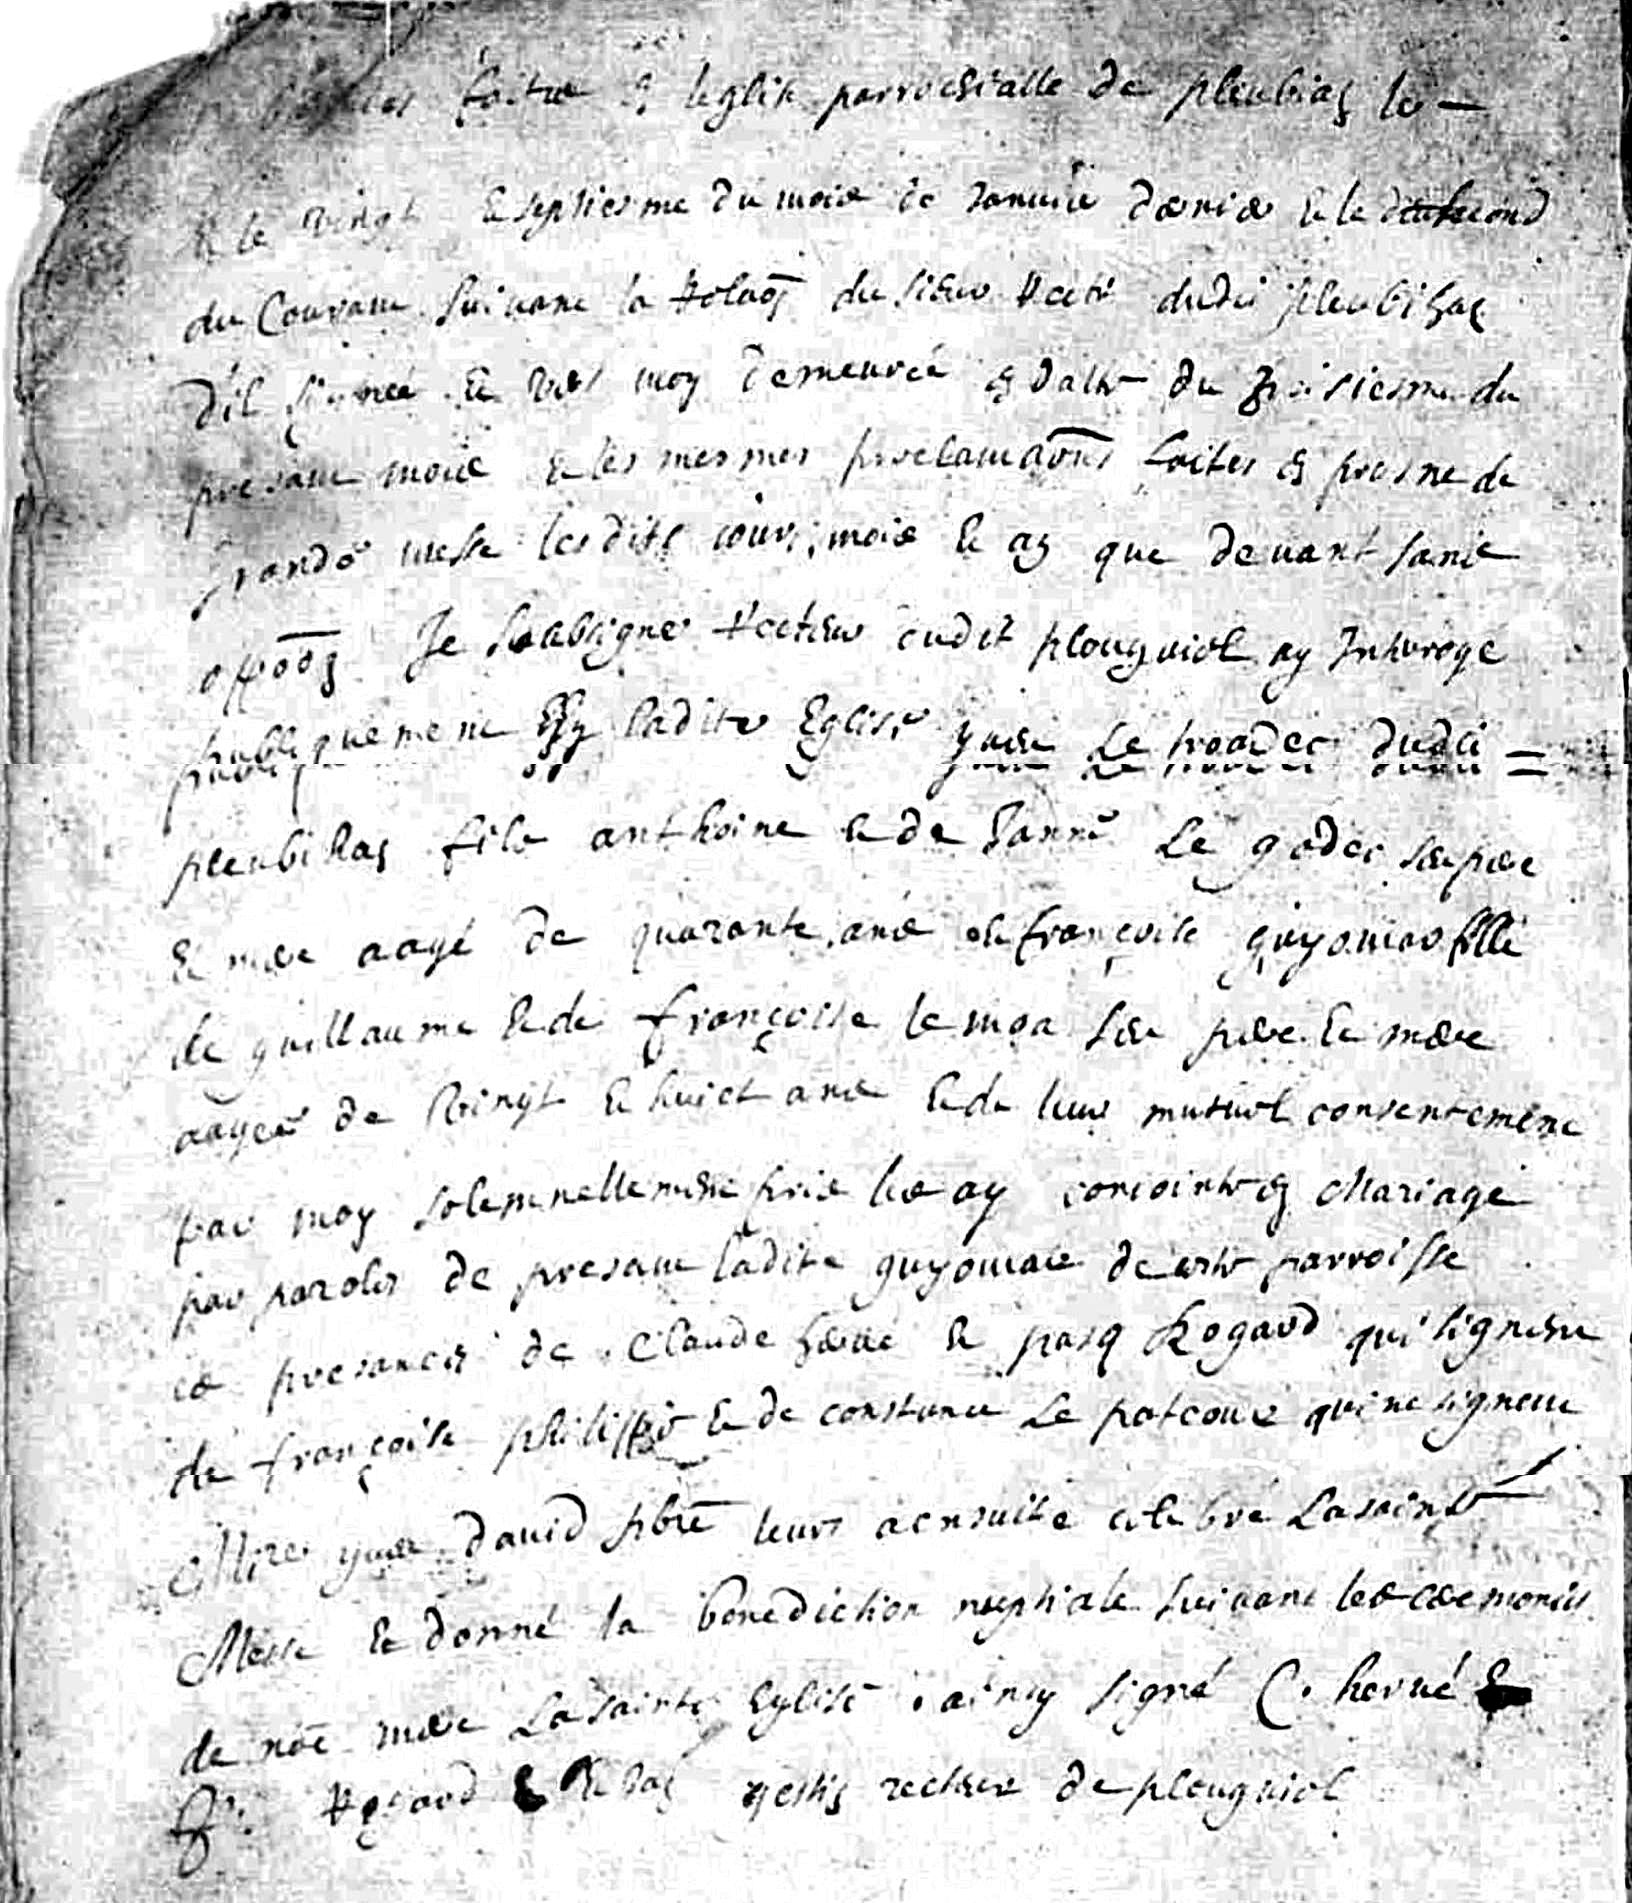 faites en leglise parroesialle de pleubian le —
& le vingt & septiesme du mois de Januier dernier & le second
du Courant suiuant la relaon du sieur recteur dudit pleubihan
dil signée & vers moy demeurée en datte du troisiesme du
presant mois & les mesmes proclamaons faites en prosne de
grande messe lesdits iours, mois & an que deuant sans
oppoon Je soubsigne recteur dudit plouguiel ay Interogé
publiquement En ladite Eglise yuon Le troadec dudit =
pleubihan fils anthoine & de Janne Le godec ses pere
& mere aagé de quarante ans & françoise guyomar fille
de guillaume & de françoise le moa ses pere & mere
aagée de vingt & huict ans & de leur mutuel consentement
par moy solemnellement pris les ay conioints en Mariage
par paroles de presant ladite guyomar de cette parroisse
es presances de Claude herué & Rogard qui signent
de françoise philippe & de constance Le patcour qui ne signent
Mire yues dauid pbre leurs a ensuite celebré La sainte
Messe & donné la benediction nuptiale suiuant les ceremonies
de nre mere La sainte Eglise, ainsy signé C. herué &
Rogard & recteur de plouguiel